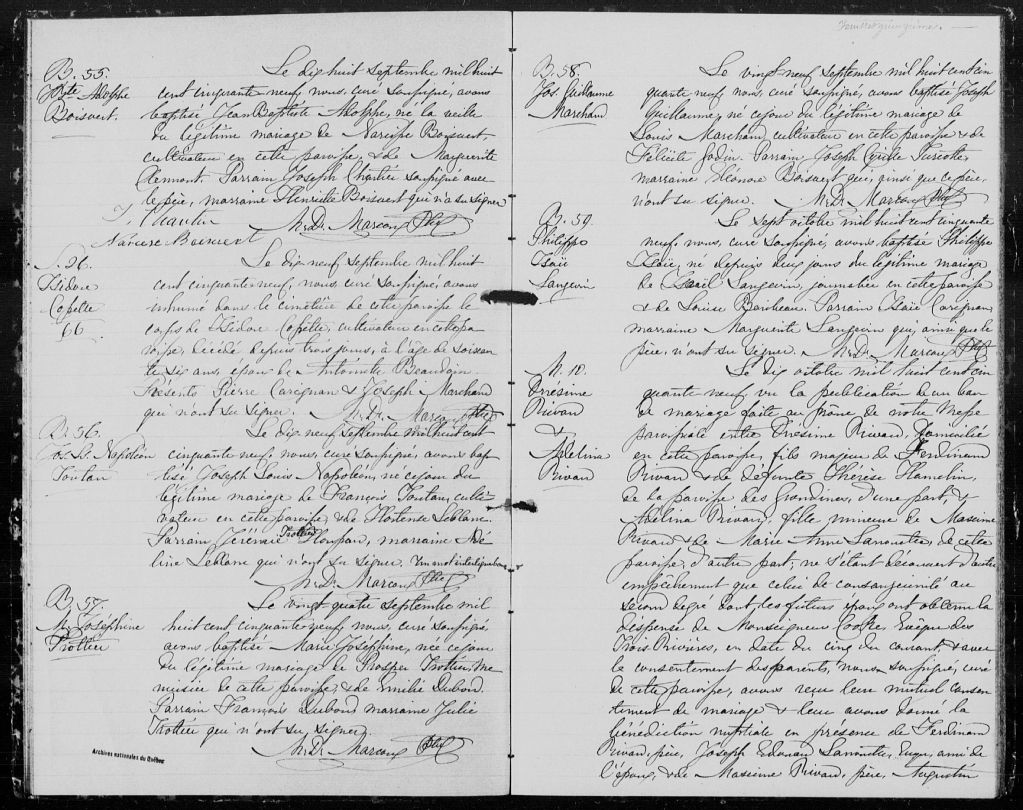 B. 55.
Bte Adolphe
Boisvert.
Le dix huit septembre mil huit
cent cinquante neuf, nous, curé soussigné, avons
baptisé Jean Baptiste Adolphe, né la veille
du légitime mariage de Narcisse Boisvert
cultivateur en cette paroisse, & de Marguerite
Clermont. Parrain Joseph Chartier soussigné avec
le père, marraine Henriette Boisvert qui n'a su signer
J. Chartier M. Dr. Marcoux Ptre
Narcisse Boisvert
S. 26.
Isidore
Copette
66
Le dix neuf septembre mil huit
cent cinquante neuf, nous, curé soussigné, avons
inhumé dans le cimetière de cette paroisse le
corps d'Isidore Copette, cultivateur en cette pa
roisse, décédé depuis trois jours, à l'âge de soixan
te six ans, époux de Antoinette Beaudoin.
Présents Pierre Carignan & Joseph Marchand
qui n'ont su signer. M. Dr. Marcoux Ptre
B. 56.
Jos. Ls. Napoléon
Toutan
Le dix neuf septembre mil huit cent
cinquante neuf, nous, curé soussigné, avons bap
tisé Joseph Louis Napoléon, né ce jour du
légitime mariage de François Toutan, culti-
vateur en cette paroisse, & de Hortense Leblanc.
Parrain Jérémie Trottier marraine
Leblanc qui n'ont su signer. Un mot interligne bon
M. Dr. Marcoux Ptre
B. 57.
M. Joséphine
Trottier
Le vingt quatre septembre mil
huit cent cinquante neuf, nous, curé soussigné,
avons baptisé Marie Joséphine, née ce jour
du légitime mariage de Prosper Trottier, me
nuisier de cette paroisse, & de Emilie Dubord.
Parrain François Dubord marraine Julie
Trottier qui n'ont su signer
M. Dr. Marcoux Ptre
Archives nationales du Québec
B. 58.
Jos. Guillaume
Marchand
Le vingt neuf septembre mil huit cent cin
quante neuf nous, curé soussigné, avons baptisé Joseph
Guillaume, né ce jour du légitime mariage de
Louis Marchand, cultivateur en cette paroisse & de
Félicité Godin. Parrain Joseph Cyrille Turcotte,
marraine Eléonore Boisvert qui, ainsi que le père,
n'ont su signer. M. Dr. Marcoux Ptre
B. 59.
Philippe
Isaïe
Langevin
Le sept octobre mil huit cent cinquante
neuf, nous, curé soussigné, avons baptisé Philippe
Isaïe, né depuis deux jours du légitime mariage
de Israël Langevin, journalier en cette paroisse
& de Louise Baribeau. Parrain Isaïe Carignan,
marraine Marguerite Langevin qui, ainsi que le
père, n'ont su signer. M. Dr. Marcoux Ptre
M. 10.
Onésime
Rivard
&
Adelina
Rivard
Le dix octobre mil huit cent cin
quante neuf, vu la publication d'un ban
de mariage faite au prône de notre Messe
paroissiale entre Onésime Rivard, domicilié
en cette paroisse, fils majeur de Ferdinand
Rivard & de défunte Thérèse Hamelin,
de la paroisse des Grondines, d'une part, &
Adelina Rivard, fille mineure de Maxime
Rivard & de Marie Anne Lanouette, de cette
paroisse, d'autre part; ne s'étant découvert d'autre
empêchement que celui de consanguinité au
second degré dont les futurs époux ont obtenu la
dispense de Monseigneur Cooke, Evêque des
Trois Rivières, en date du cinq du courant & avec
le consentement des parents, nous soussigné, curé
de cette paroisse, avons reçu leur mutuel consen
tement de mariage & leur avons donné la
bénédiction nuptiale en présence de Ferdinan
Rivard, père, Joseph Edouard Lanouette, Ecuyer, ami de
l'époux, & de Maxime Rivard, père, Augustin